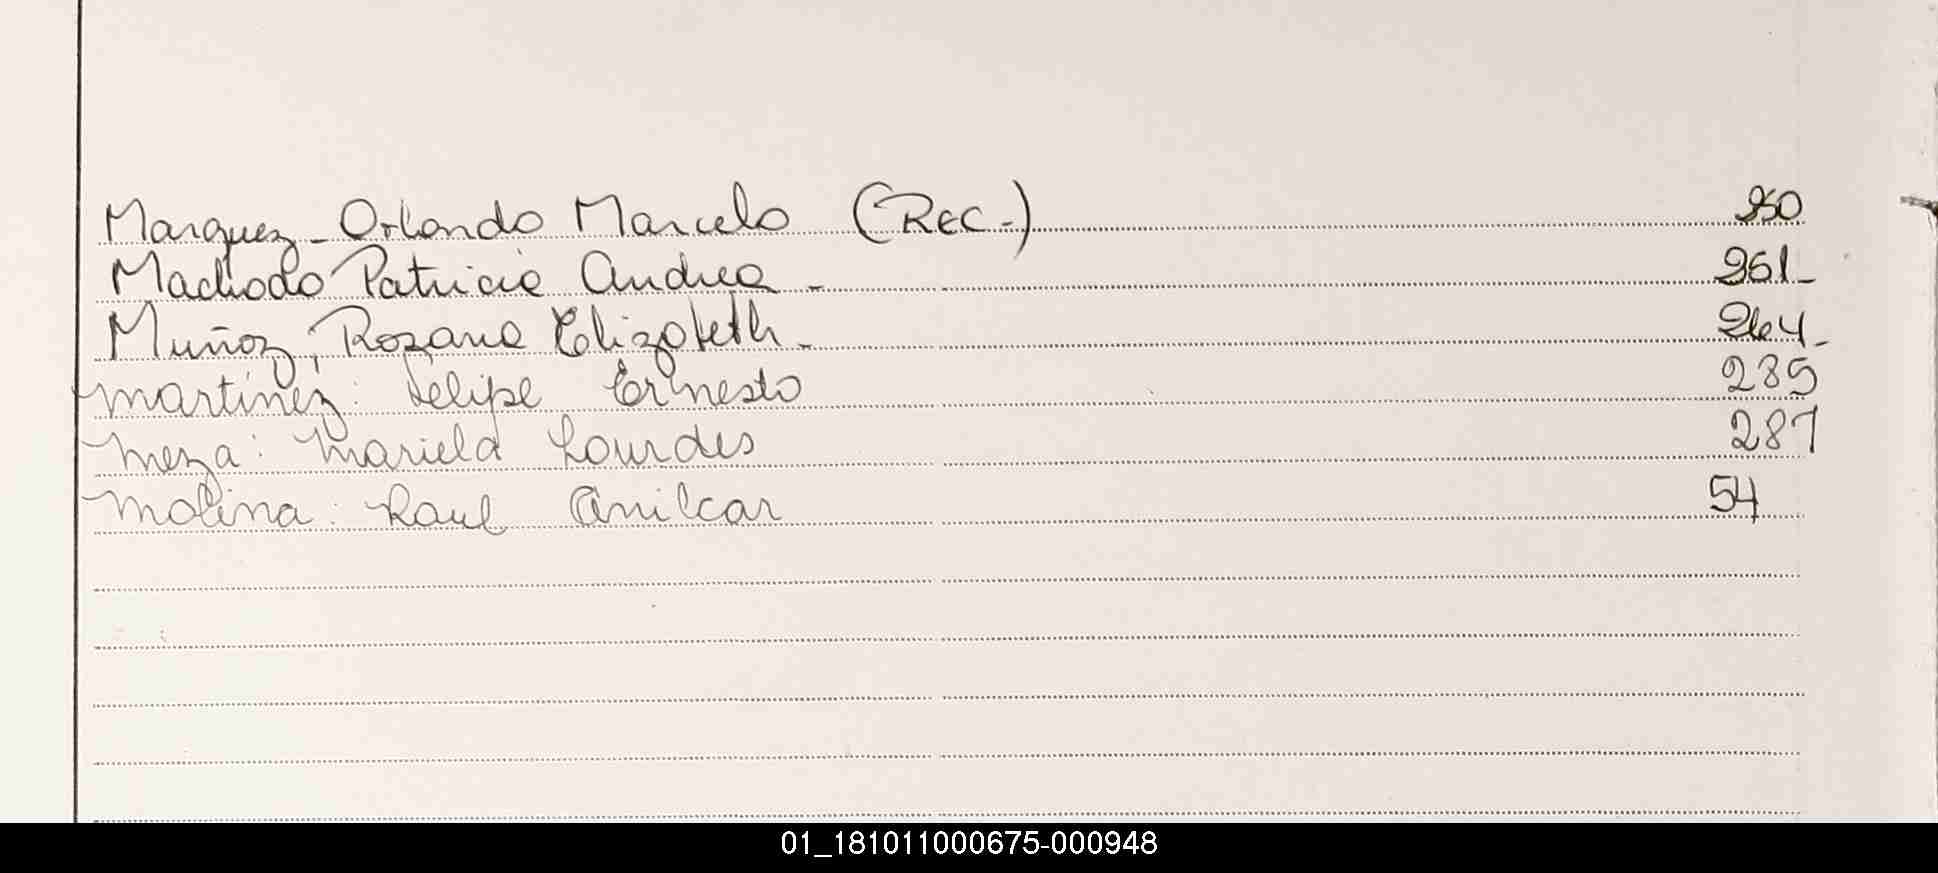 Marquez - Orlando Marcelo (REC.-) 250
Machado Patricia Andrea - 261-
Muñoz, Rozana Elizabeth - 264-
martinez: Felipe Ernesto 285
meza: Mariela Lourdes 287
molina: Raul Amilcar 54
01_181011000675-000948